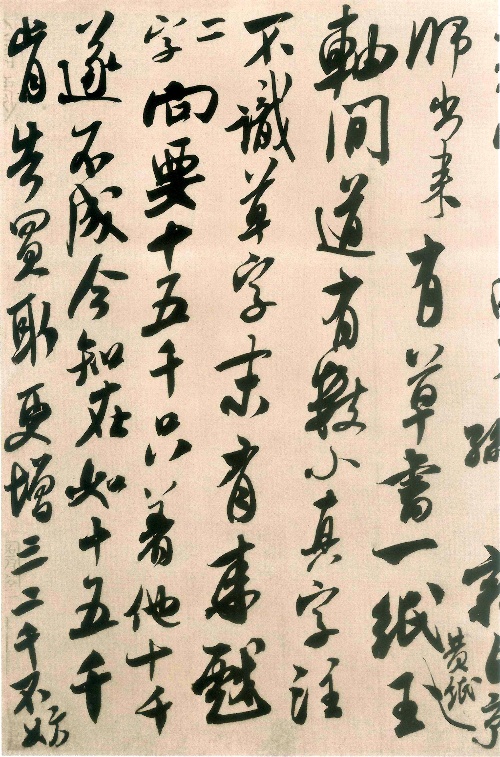 師出来有草書一紙黄紙王
軸間道有數小真字注
不識草字末有来戲
二字向要十五千只著他十千
遂不成今知在如十五千
肯告買取更增三二千不妨